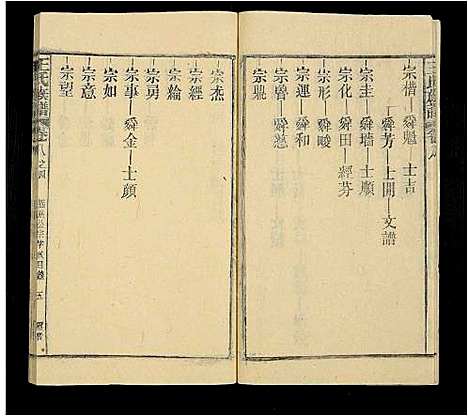 王氏族譜 卷八
宗楷—舜魁—士吉
舜芳—士開—文譜
宗圭—舜墙—士願
宗化—舜田—經芬
宗形—舜畯
宗運—舜和
宗魯—舜慈
宗騩
宗杰
宗經
宗綸
宗男
宗事—舜金—士顔
宗如
宗意
宗望
王氏族譜 卷八之四
五